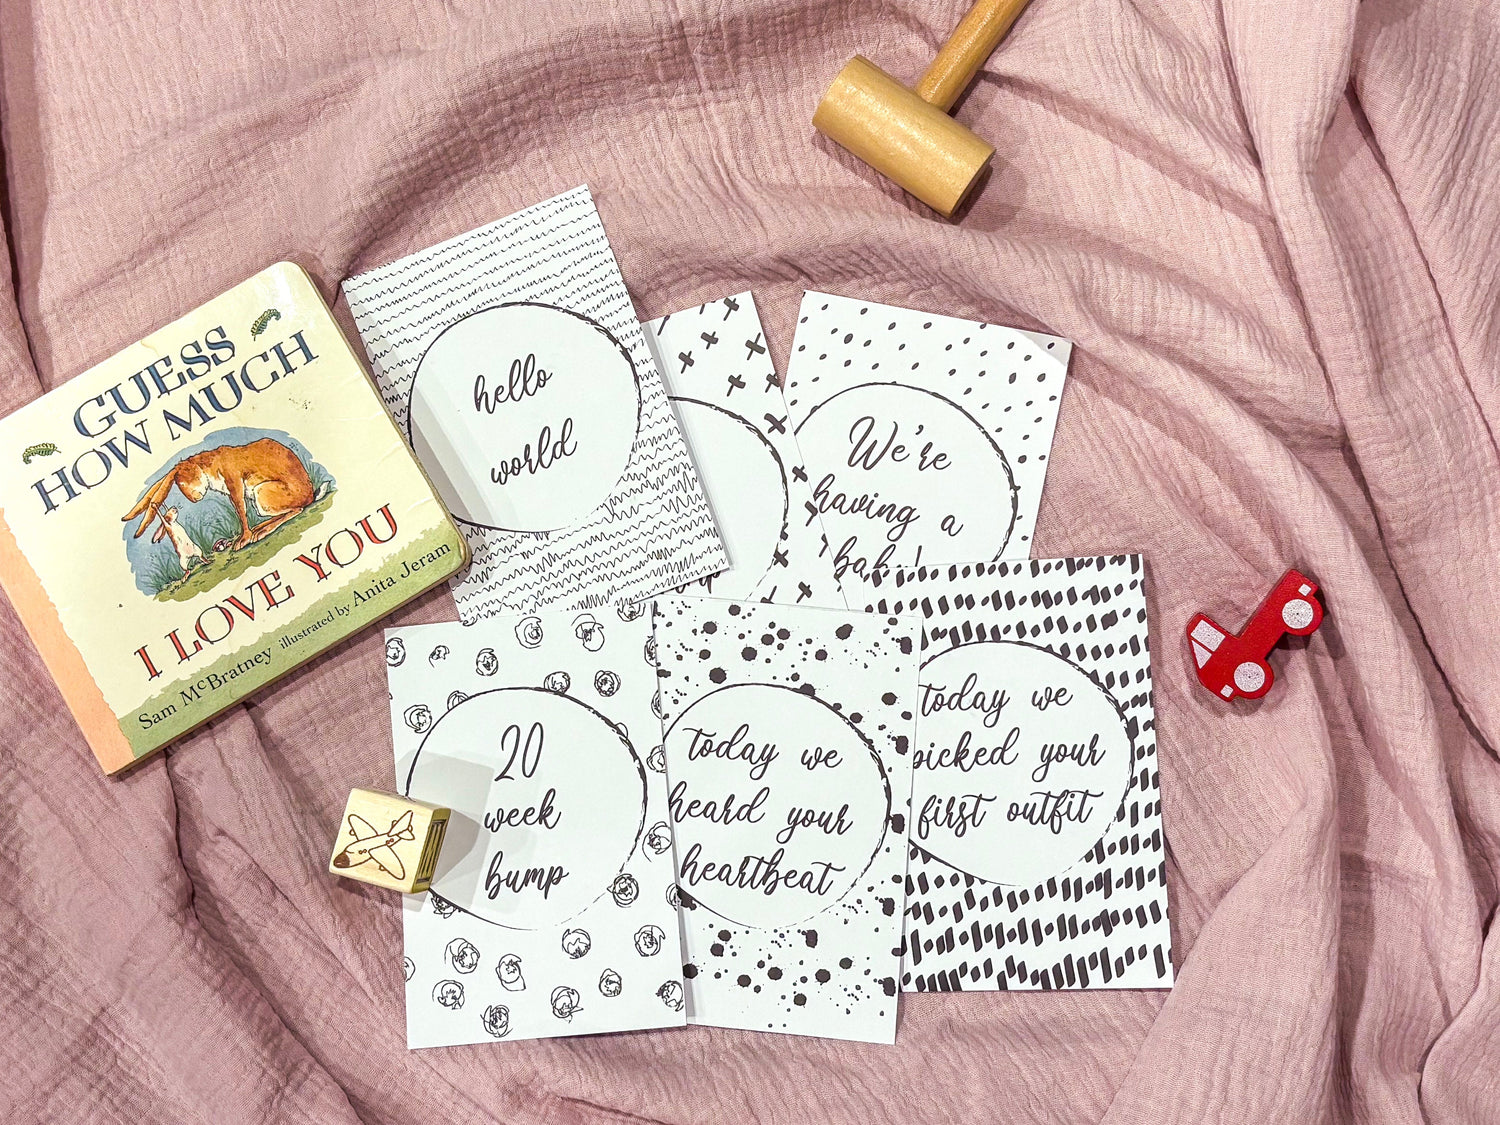 GUESS
HOW MUCH
I LOVE YOU
Sam McBratney illustrated by Anita Jeram
hello
world
We're
having a
20
week
bump
today we
heard your
heartbeat
today we
picked your
first outfit